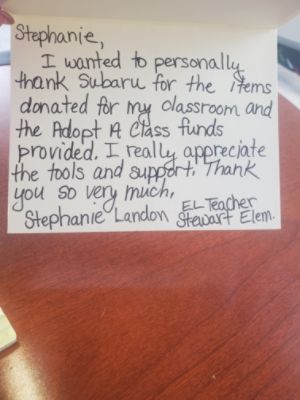 Stephanie,
I wanted to personally
thank Subaru for the items
donated for my classroom and
the Adopt A Class funds
provided. I really appreciate
the tools and support. Thank
you so very much,
Stephanie Landon EL Teacher
Stewart Elem.